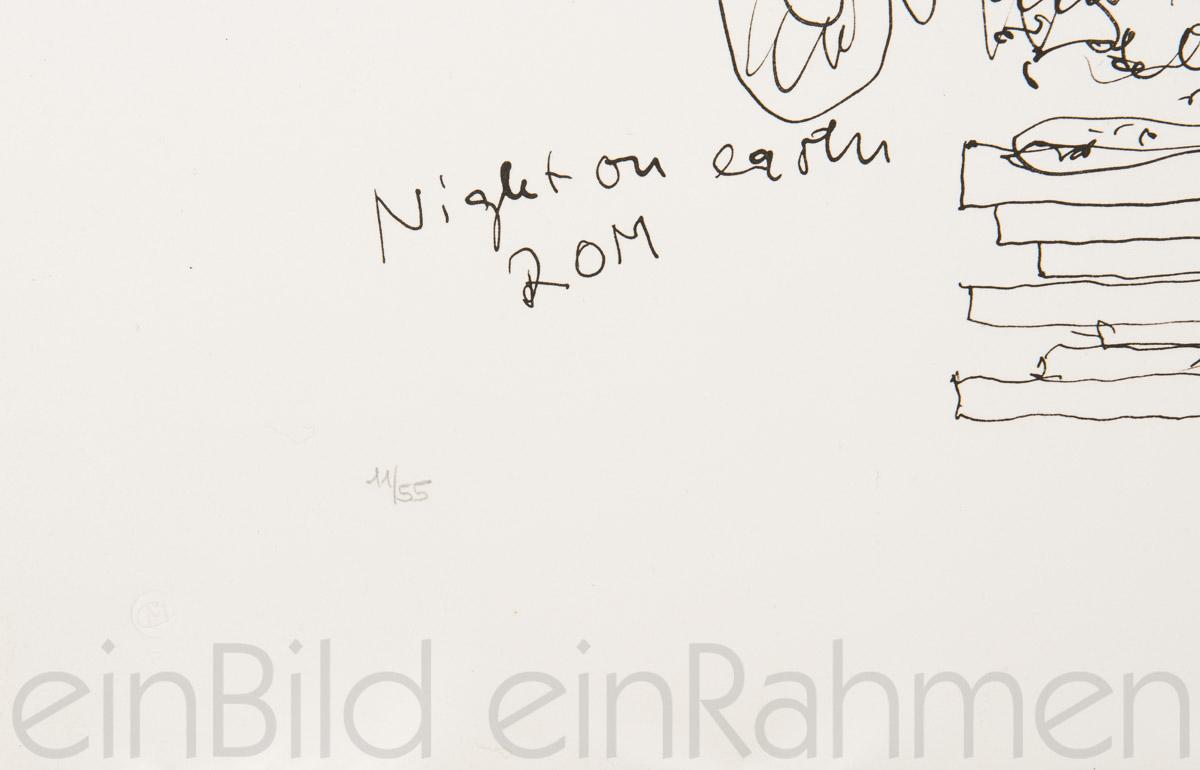 Night on earth
ROM
11/55
einBild einRahmen